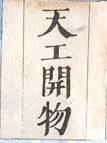 天工開物